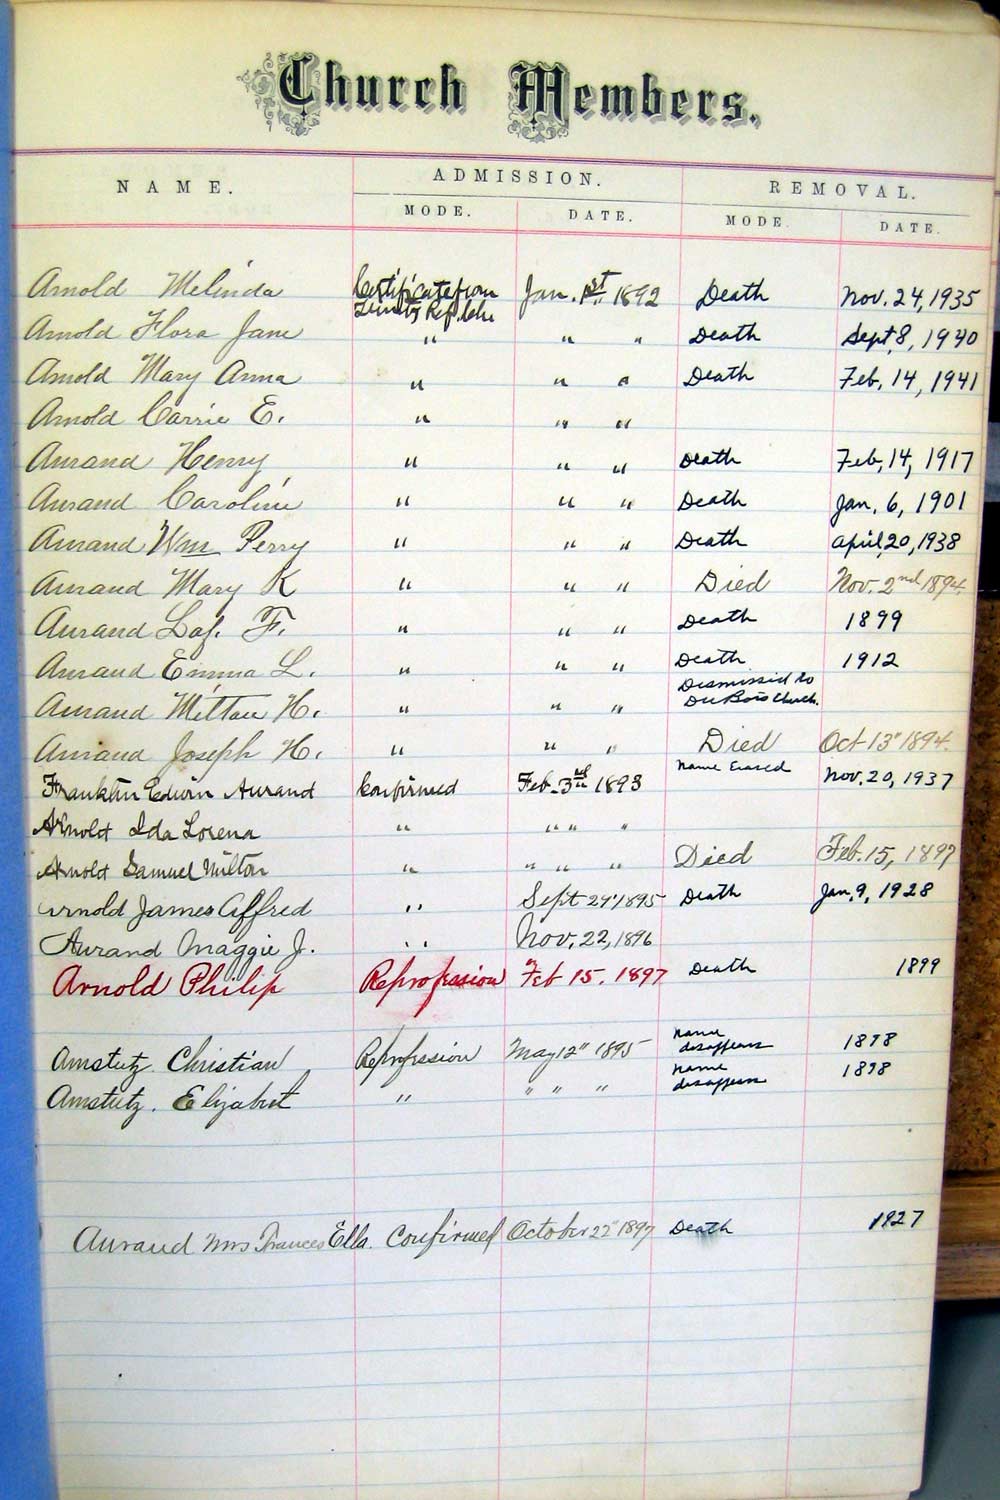 Church Members.
NAME. ADMISSION. REMOVAL.
MODE. DATE. MODE. DATE.
Arnold Melinda Certificate from Jan. 1st 1892 Death Nov. 24, 1935
Arnold Flora Jane " " " Death Sept, 8, 1940
Arnold Mary Anna " " " Death Feb, 14, 1941
Arnold Carrie E. " " "
Aurand Henry " " " Death Feb, 14, 1917
Aurand Caroline " " " Death Jan. 6, 1901
Aurand Wm Perry " " " Death April, 20, 1938
Aurand Mary K " " " Died Nov. 2nd 1894.
Aurand Laf. F. " " " Death 1899
Aurand Emma L. " " " Death 1912
Aurand Milton H. " " " Dismissed to
Du Bois Church.
Aurand Joseph H. " " " Died Oct 13" 1894.
Franklin Edwin Aurand Confirmed Feb. 3rd 1893 Name Erased Nov. 20, 1937
Arnold Ida Lorena " " " "
Arnold Samuel Milton " " " " Died Feb. 15, 1897
Arnold James Alfred " Sept 29" 1895 Death Jan, 9, 1928
Aurand Maggie J. " Nov. 22, 1896
Arnold Philip Reprofession Feb 15. 1897 Death 1899
Amstutz Christian Reprofession May 12" 1895 name
disappears 1898
Amstutz. Elizabet " " " " name
disappears 1898
Aurand Mrs Frances Ella. Confirmed October 22" 1897 Death 1927